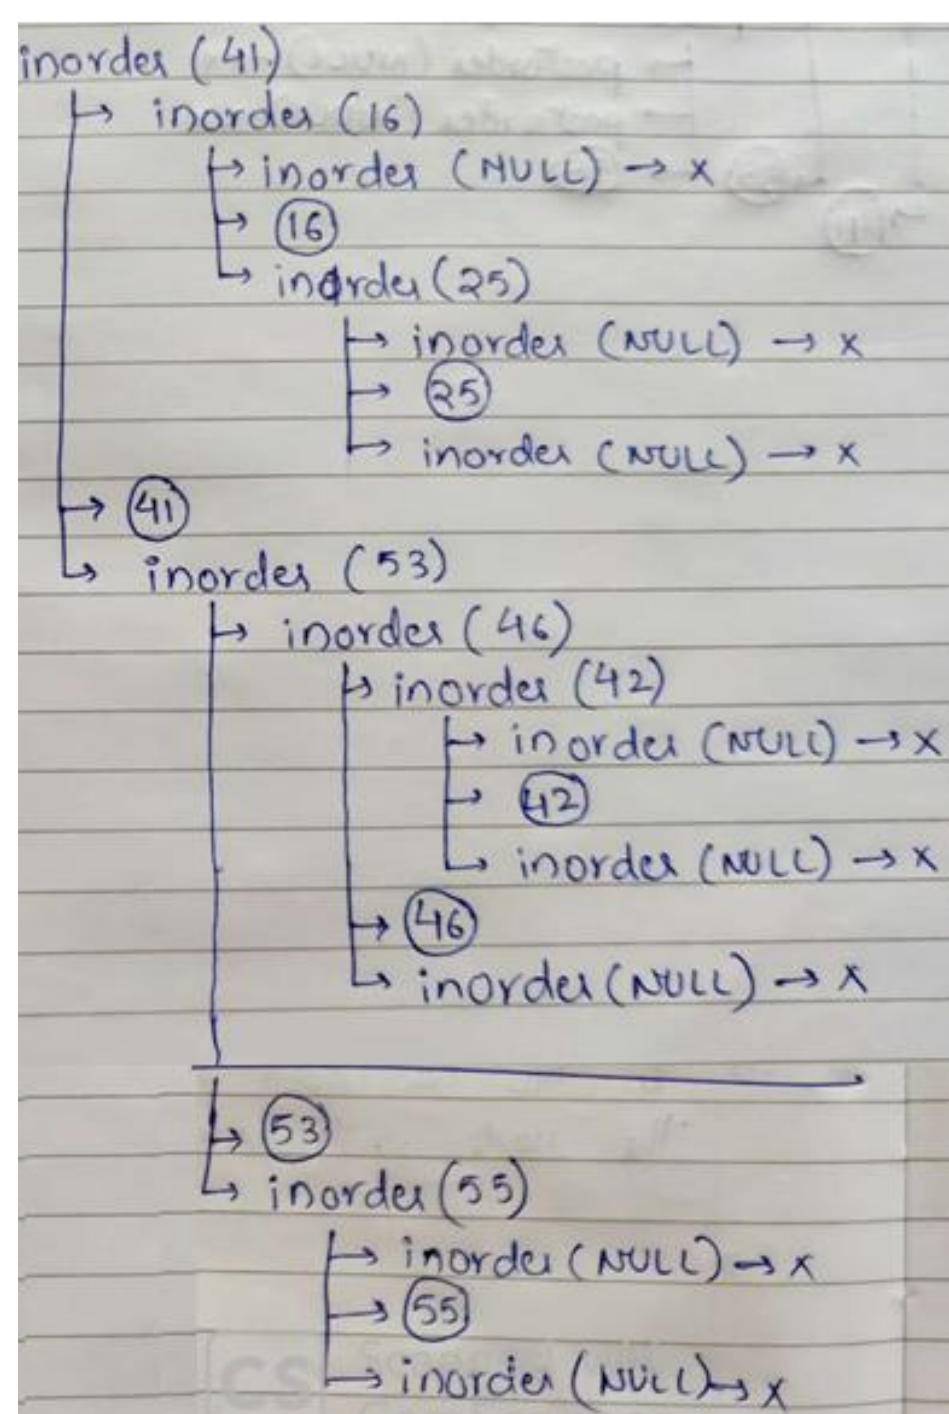 inorder (41)
→ inorder (16)
→ inorder (NULL) → x
→ 16
→ inorder (25)
→ inorder (NULL) → x
→ 25
→ inorder (NULL) → x
→ 41
→ inorder (53)
→ inorder (46)
→ inorder (42)
→ inorder (NULL) → x
→ 42
→ inorder (NULL) → x
→ 46
→ inorder (NULL) → x
→ 53
→ inorder (55)
→ inorder (NULL) → x
→ 55
→ inorder (NULL) → x
CS